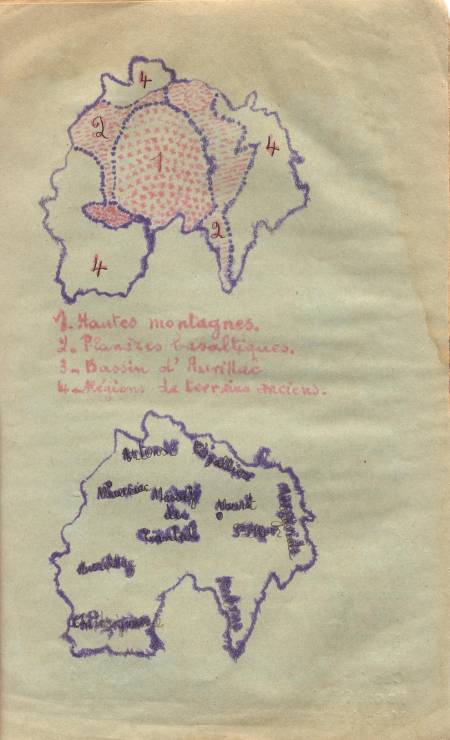 4
2
4
1
2
4
1. Hautes montagnes.
2. Planèzes basaltiques.
3. Bassin d'Aurillac
4. Régions de terrains anciens.
Artense
Mauriac
Massif
du
Cantal
Murat
St Flour
Margeride
Aurillac